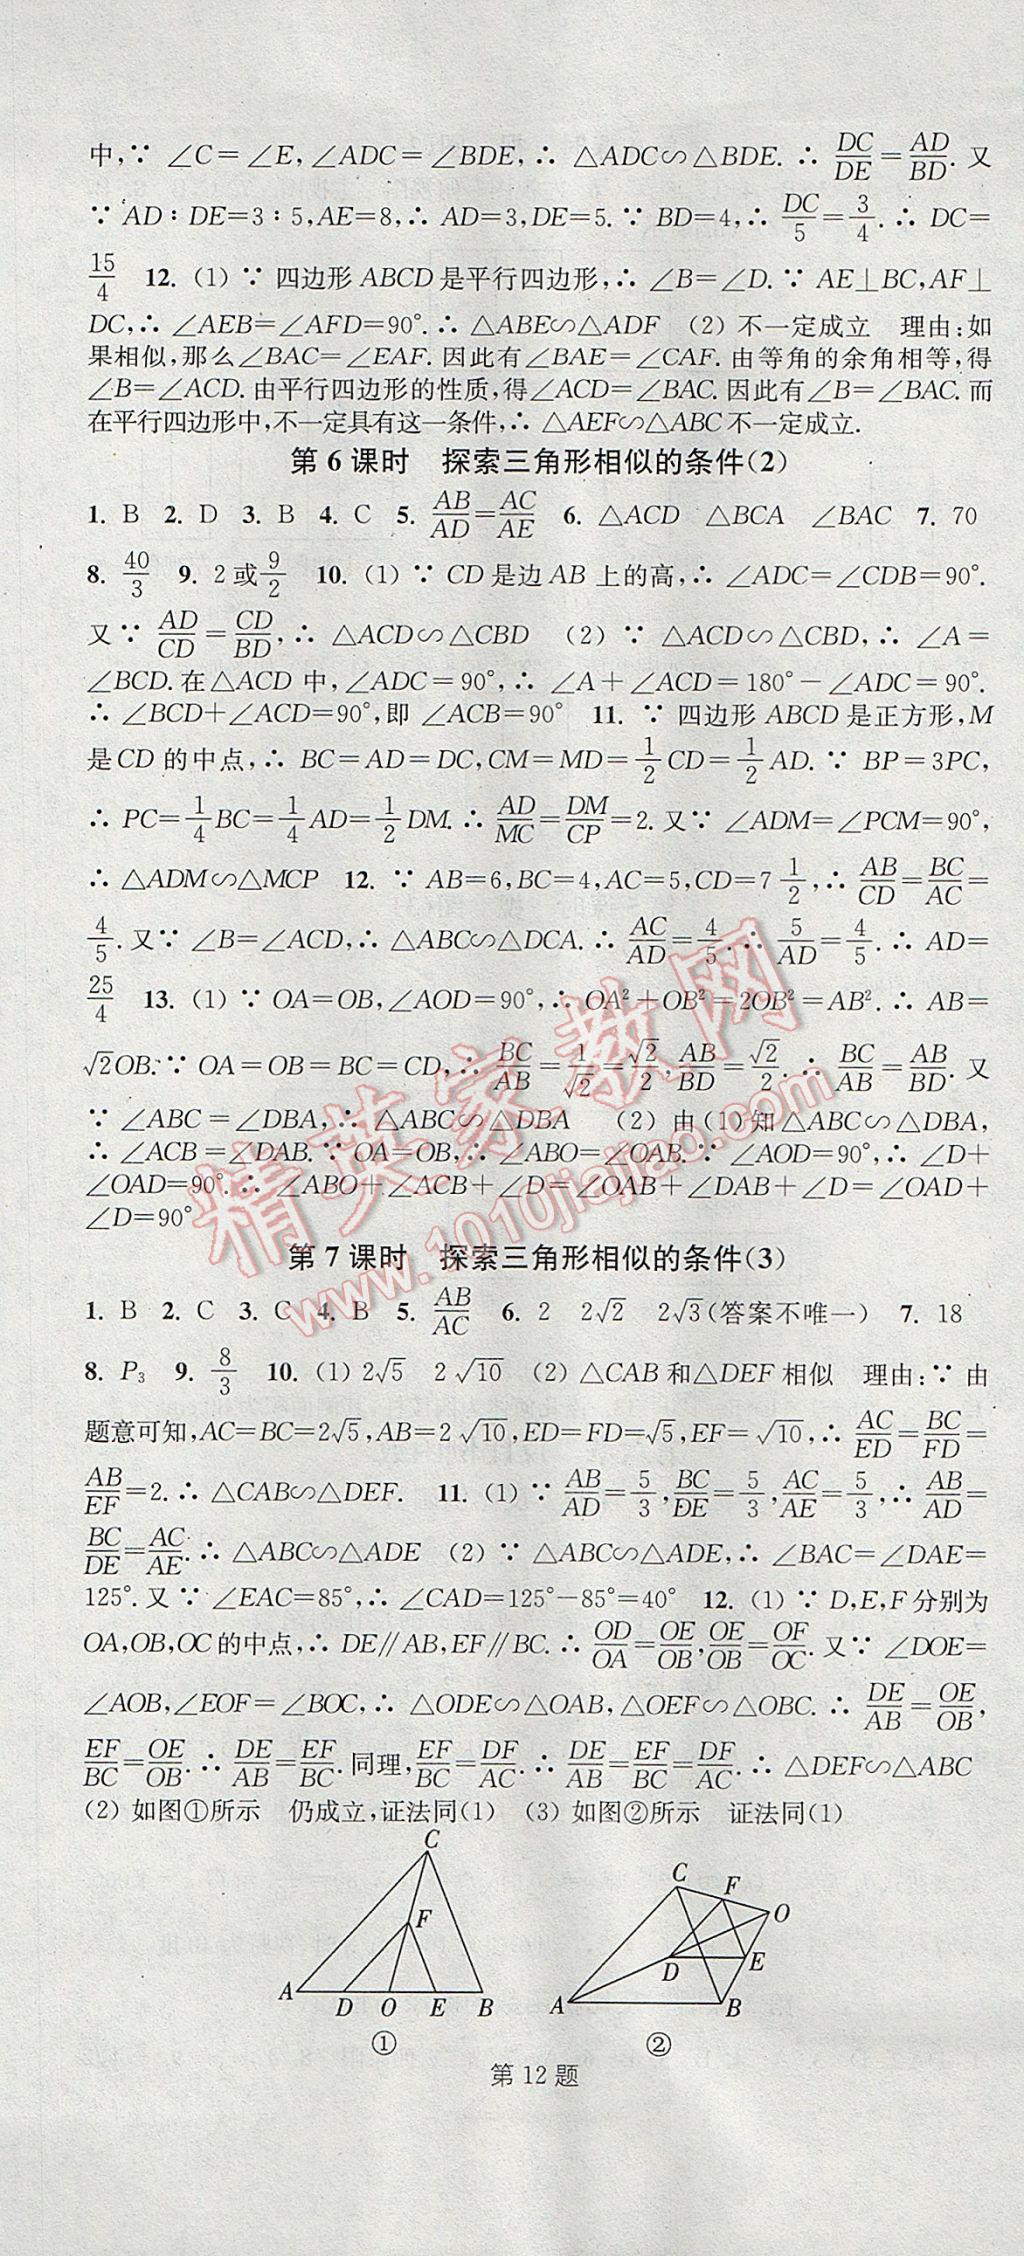 中,∵ ∠C=∠E,∠ADC=∠BDE,∴ △ADC∽△BDE.∴ DC/DE=AD/BD.又
∵ AD∶DE=3∶5,AE=8,∴ AD=3,DE=5.∵ BD=4,∴ DC/5=3/4.∴ DC=
15/4 12. (1) ∵ 四边形 ABCD 是平行四边形,∴ ∠B=∠D.∵ AE⊥BC,AF⊥
DC,∴ ∠AEB=∠AFD=90°.∴ △ABE∽△ADF (2) 不一定成立 理由:如
果相似,那么∠BAC=∠EAF.因此有∠BAE=∠CAF.由等角的余角相等,得
∠B=∠ACD.由平行四边形的性质,得∠ACD=∠BAC.因此有∠B=∠BAC.而
在平行四边形中,不一定具有这一条件,∴ △AEF∽△ABC不一定成立.
第 6 课时 探索三角形相似的条件(2)
1. B 2. D 3. B 4. C 5. AB/AD=AC/AE 6. △ACD △BCA ∠BAC 7. 70
8. 40/3 9. 2或9/2 10. (1) ∵ CD 是边 AB 上的高,∴ ∠ADC=∠CDB=90°.
又∵ AD/CD=CD/BD,∴ △ACD∽△CBD (2) ∵ △ACD∽△CBD,∴ ∠A=
∠BCD.在△ACD 中,∠ADC=90°,∴ ∠A+∠ACD=180°-∠ADC=90°.
∴ ∠BCD+∠ACD=90°,即 ∠ACB=90° 11. ∵ 四边形 ABCD 是正方形,M
是CD 的中点,∴ BC=AD=DC,CM=MD=1/2CD=1/2AD.∵ BP=3PC,
∴ PC=1/4BC=1/4AD=1/2DM.∴ AD/MC=DM/CP=2.又∵ ∠ADM=∠PCM=90°,
∴ △ADM∽△MCP 12. ∵ AB=6,BC=4,AC=5,CD=7 1/2,∴ AB/CD=BC/AC=
4/5.又∵ ∠B=∠ACD,∴ △ABC∽△DCA.∴ AC/AD=4/5.∴ 5/AD=4/5.∴ AD=
25/4 13. (1) ∵ OA=OB,∠AOD=90°,∴ OA²+OB²=2OB²=AB².∴ AB=
√2OB.∵ OA=OB=BC=CD,∴ BC/AB=1/√2=√2/2,AB/BD=√2/2.∴ BC/AB=AB/BD.又
∵ ∠ABC=∠DBA,∴ △ABC∽△DBA (2) 由(1)知△ABC∽△DBA,
∴ ∠ACB=∠DAB.∵ OA=OB,∴ ∠ABO=∠OAB.∵ ∠AOD=90°,∴ ∠D+
∠OAD=90°.∴ ∠ABO+∠ACB+∠D=∠OAB+∠DAB+∠D=∠OAD+
∠D=90°
第 7 课时 探索三角形相似的条件(3)
1. B 2. C 3. C 4. B 5. AB/AC 6. 2 2√2 2√3(答案不唯一) 7. 18
8. P₃ 9. 8/3 10. (1) 2√5 2√10 (2) △CAB和△DEF相似 理由:∵ 由
题意可知,AC=BC=2√5,AB=2√10,ED=FD=√5,EF=√10,∴ AC/ED=BC/FD=
AB/EF=2.∴ △CAB∽△DEF. 11. (1) ∵ AB/AD=5/3,BC/DE=5/3,AC/AE=5/3,∴ AB/AD=
BC/DE=AC/AE.∴ △ABC∽△ADE (2) ∵ △ABC∽△ADE,∴ ∠BAC=∠DAE=
125°.又∵ ∠EAC=85°,∴ ∠CAD=125°-85°=40° 12. (1) ∵ D,E,F分别为
OA,OB,OC的中点,∴ DE∥AB,EF∥BC.∴ OD/OA=OE/OB,OE/OB=OF/OC.又∵ ∠DOE=
∠AOB,∠EOF=∠BOC,∴ △ODE∽△OAB,△OEF∽△OBC.∴ DE/AB=OE/OB,
EF/BC=OE/OB.∴ DE/AB=EF/BC.同理,EF/BC=DF/AC.∴ DE/AB=EF/BC=DF/AC.∴ △DEF∽△ABC
(2) 如图①所示 仍成立,证法同(1) (3) 如图②所示 证法同(1)
C
F
A D O E B
①
C F O
D E
A B
②
第 12 题
精英家教网
www.1010jiajiao.com